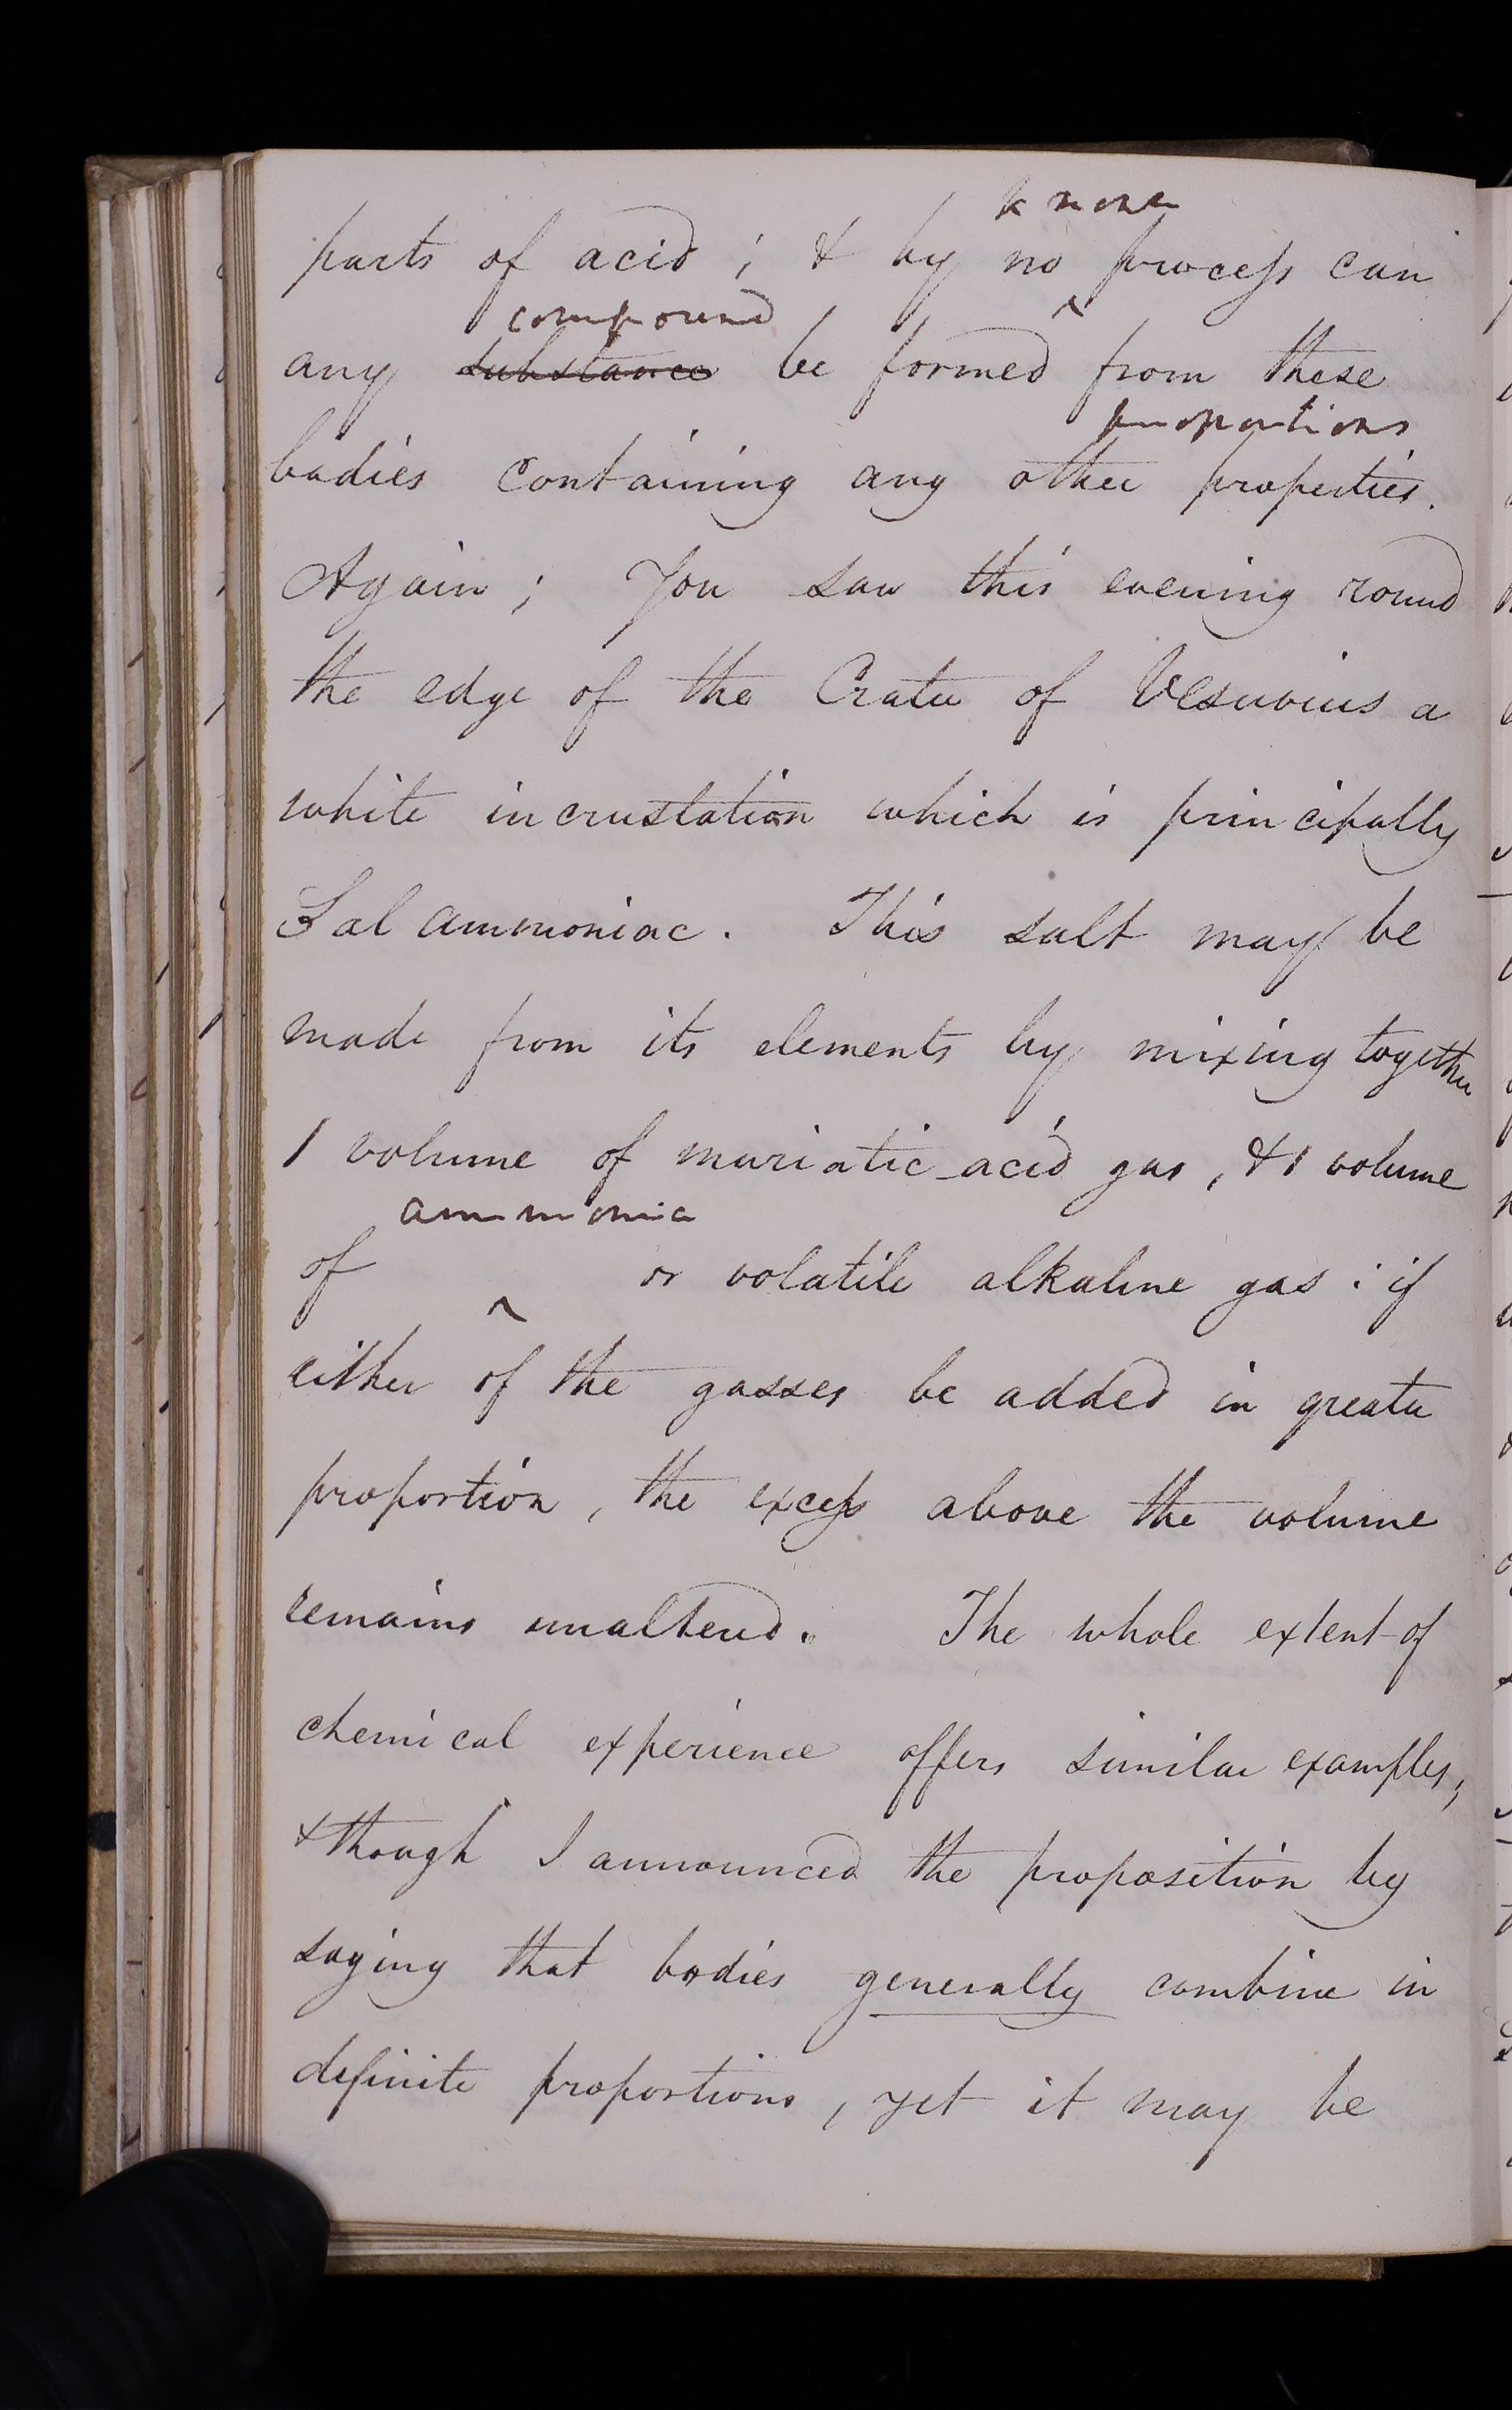 known
parts of acid ; & by no process can
compound
any substance be formed from these
proportions
bodies containing any other properties.
Again ; You saw this evening round
the edge of the Crater of Vesuvius a
white incrustation which is principally
Sal ammoniac. This salt may be
made from its elements by mixing together
1 volume of muriatic acid gas, & 1 volume
ammonia
of ^ or volatile alkaline gas : if
either of the gasses be added in greater
proportion, the excess above the volume
remains unaltered. The whole extent of
chemical experience offers similar examples;
& though I announced the proposition by
saying that bodies generally combine in
definite proportions, yet it may be